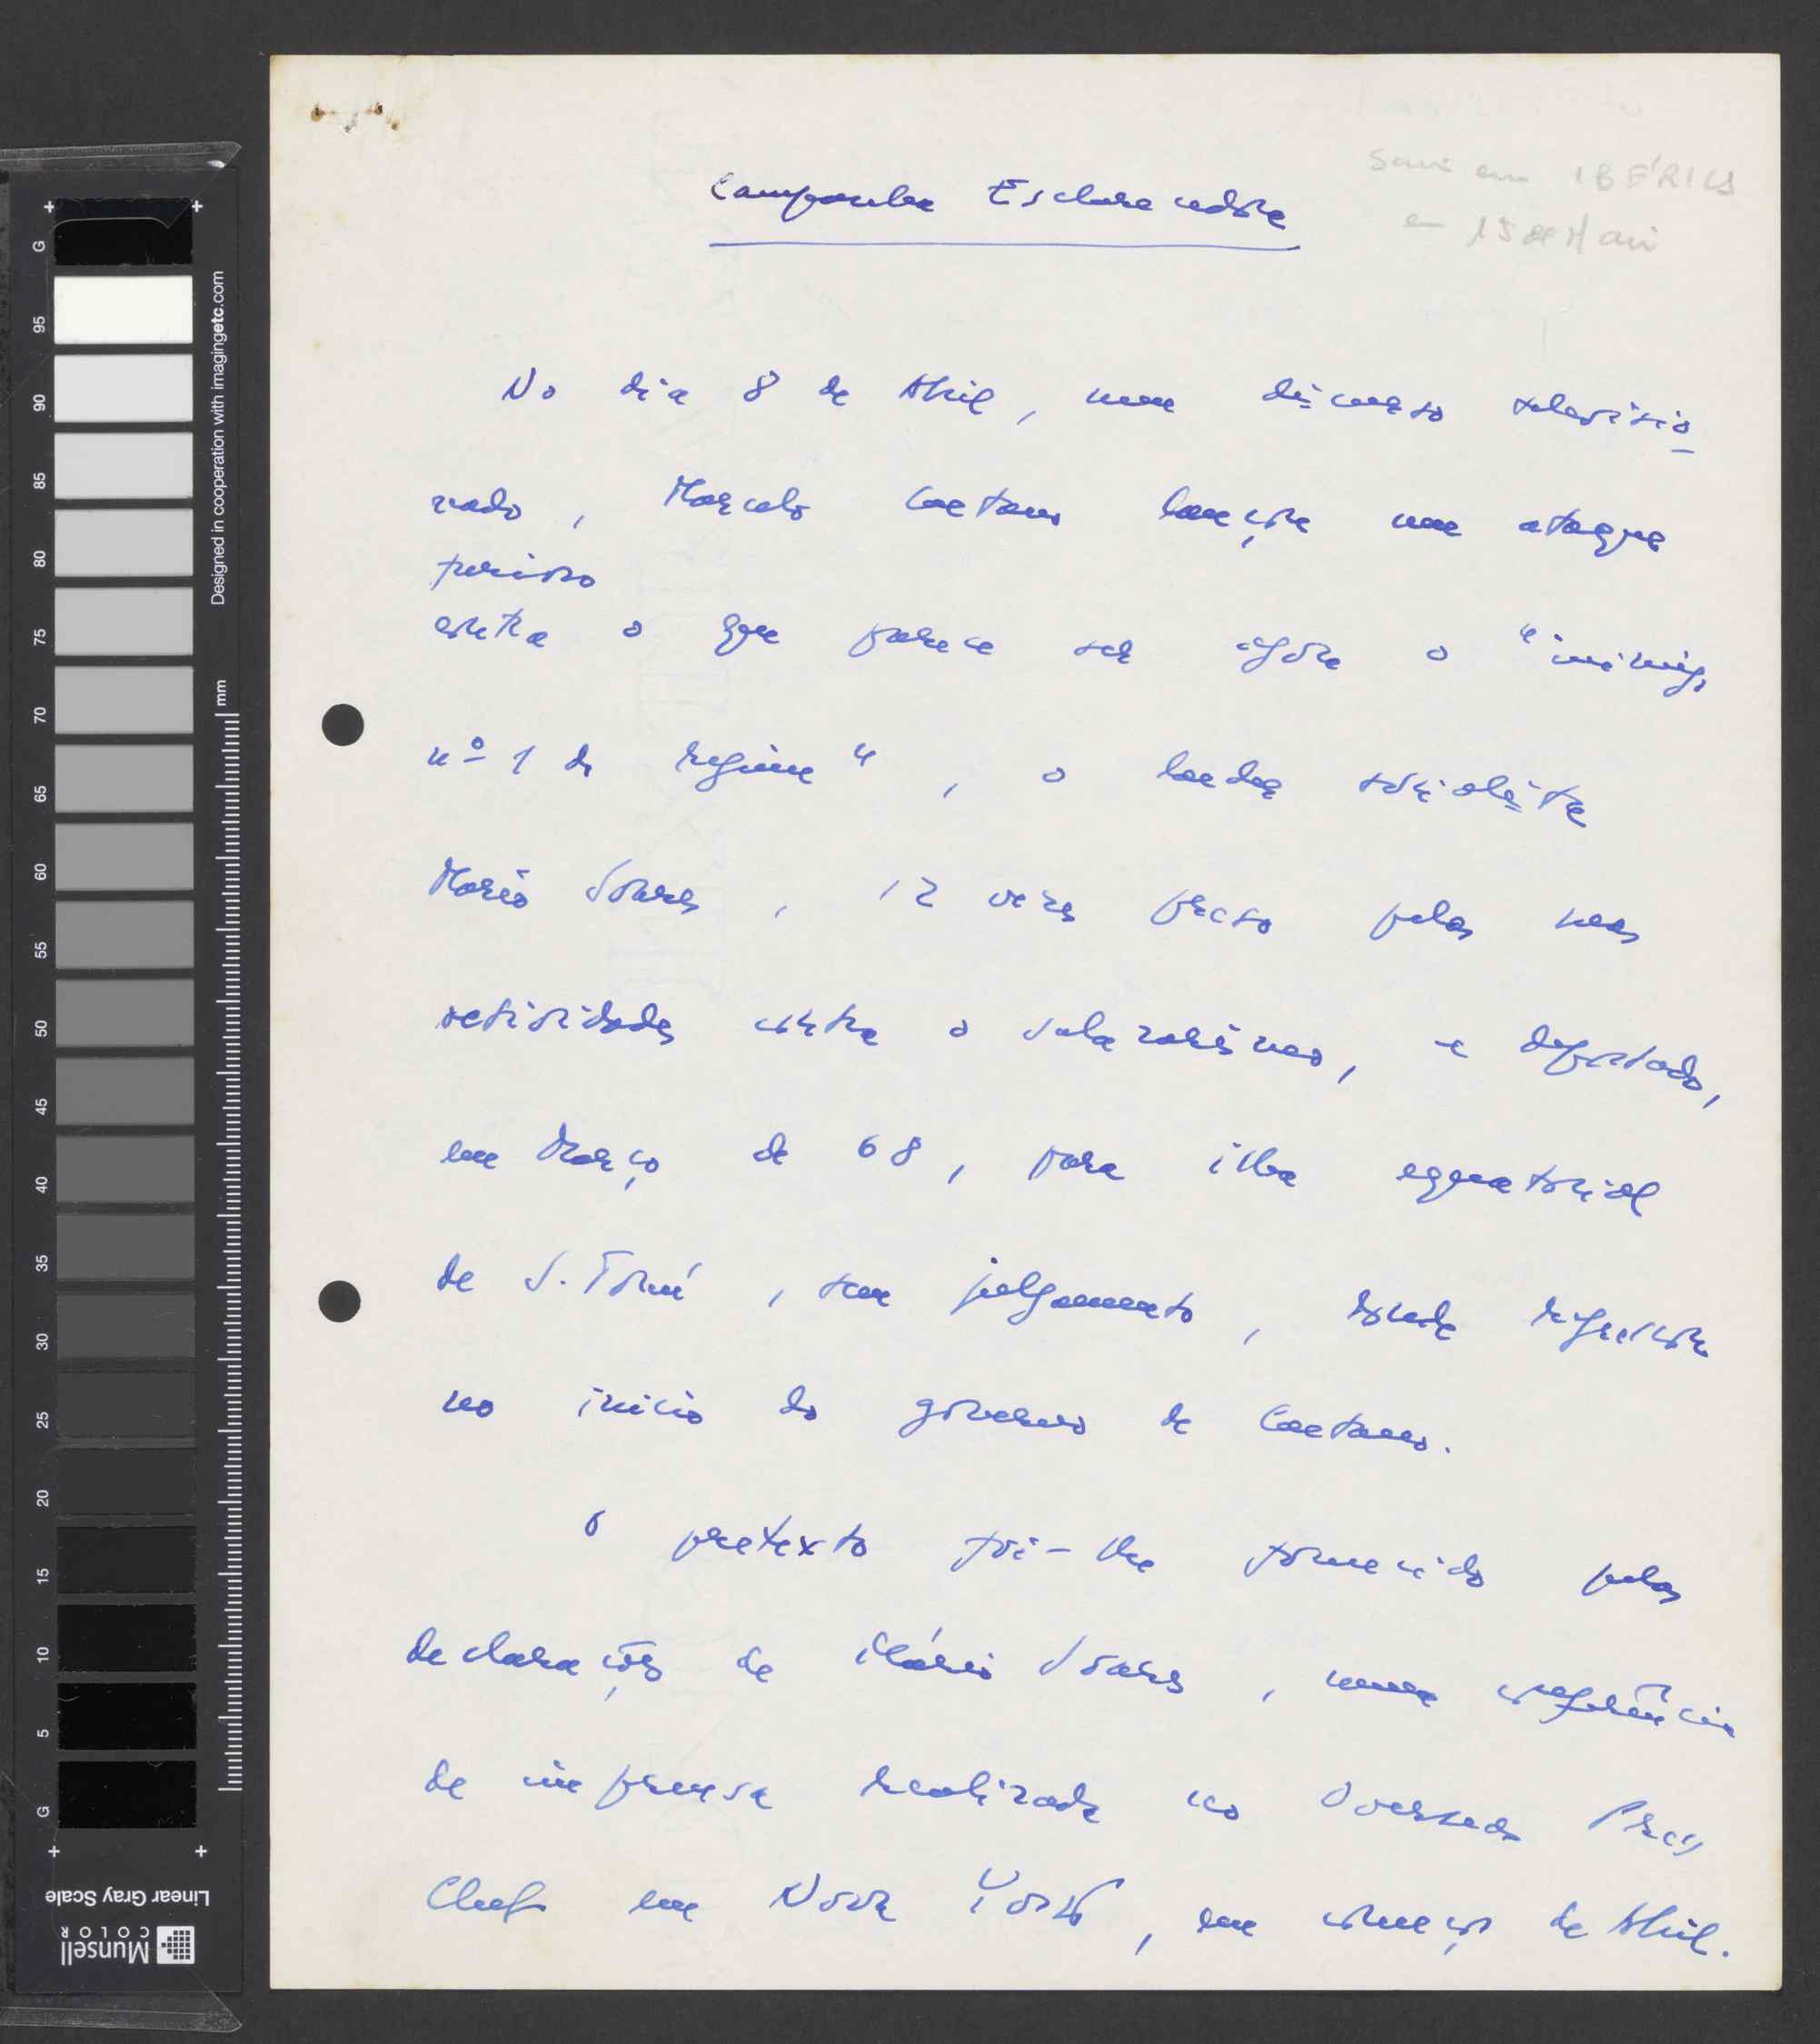 Saiu em IBÉRICA
em 15 de Maio
Campanha Esclarecedora
No dia 8 de Abril, num discurso televisio
nado, Marcelo Caetano lançou um ataque
furioso
contra o que parece ser agora o "inimigo
nº 1 do regime", o leader socialista
Mario Soares, 12 vezes preso pelas suas
actividades contra o salazarismo, e deportado,
em Março de 68, para ilha equatorial
de S. Tomé, sem julgamento, donde regressou
no inicio do governo de Caetano.
O pretexto foi-lhe fornecido pelas
declarações de Mário Soares, numa conferência
de imprensa realizada no Overseas Press
Club em Nova York, em começos de Abril.
G 5 10 15 20 25 30 35 40 45 50 55 60 65 70 75 80 85 90 95 G
mm
Designed in cooperation with imagingetc.com
Linear Gray Scale
Munsell
COLOR